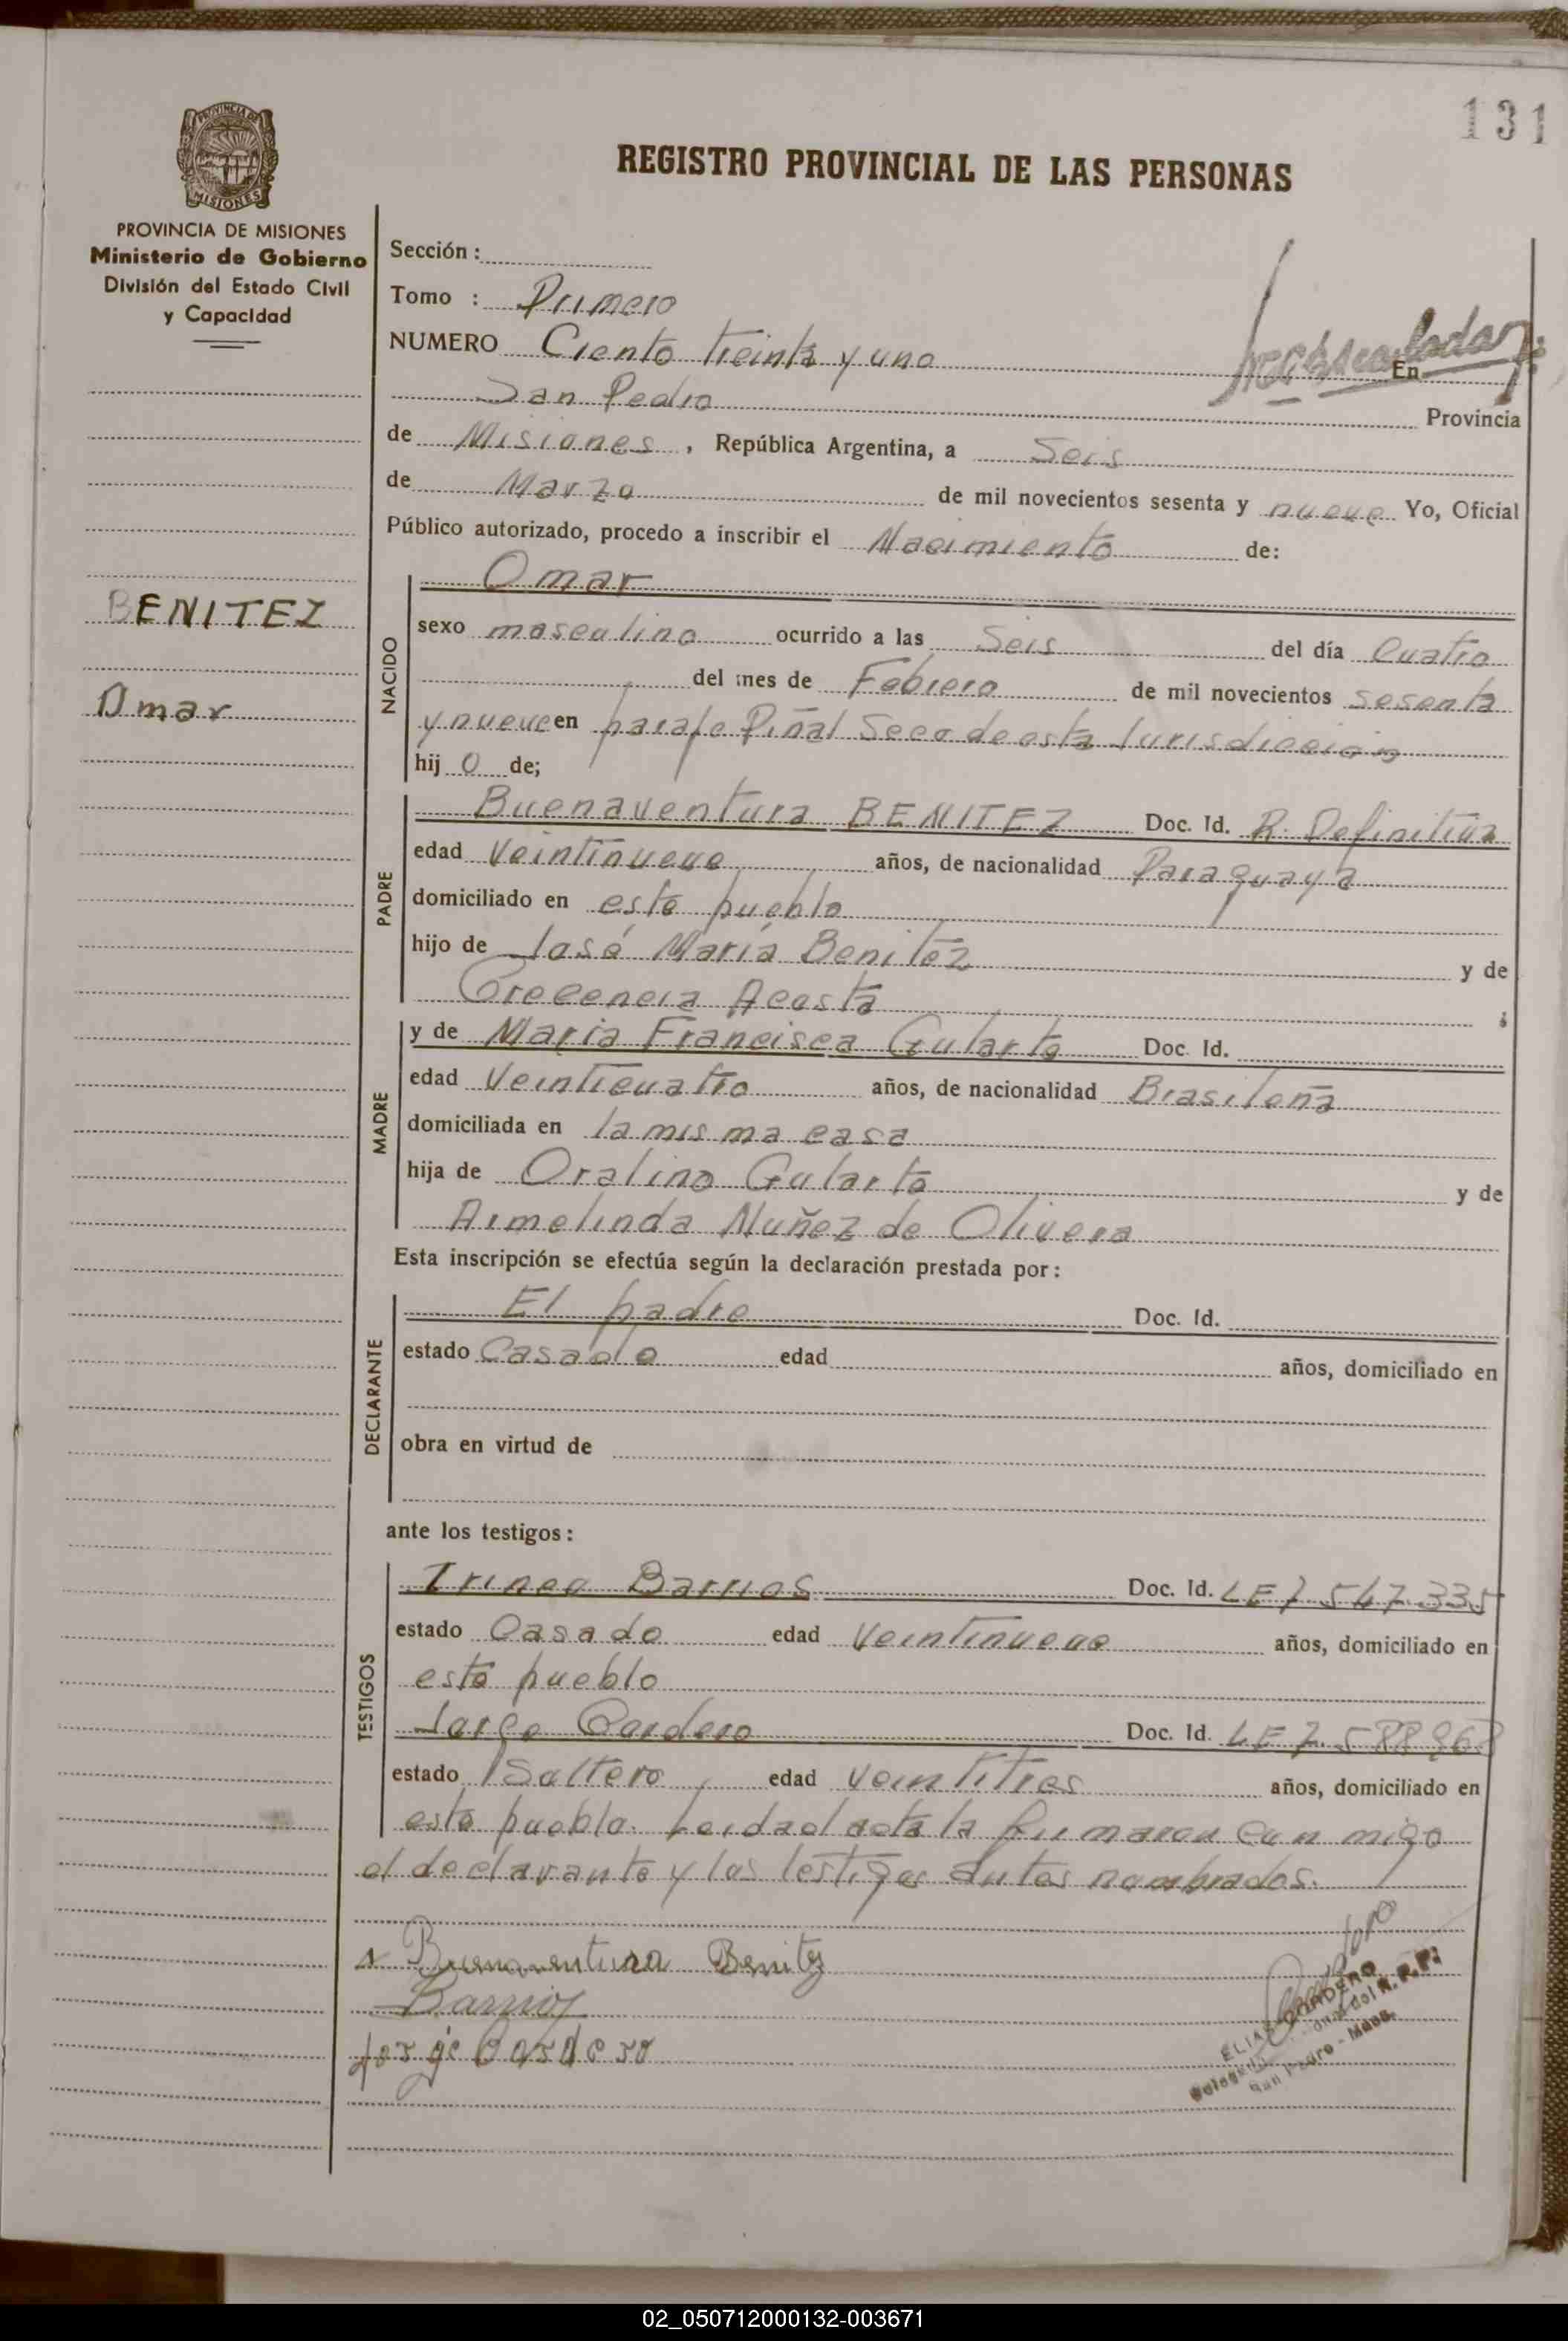 131
REGISTRO PROVINCIAL DE LAS PERSONAS
PROVINCIA DE MISIONES
PROVINCIA DE MISIONES
Ministerio de Gobierno
División del Estado Civil
y Capacidad
BENITEZ
Omar
Sección :
Tomo : Primero
NUMERO Ciento treinta y uno En
San Pedro Provincia
de Misiones , República Argentina, a Seis
de Marzo de mil novecientos sesenta y nueve Yo, Oficial
Público autorizado, procedo a inscribir el Nacimiento de:
NACIDO
Omar
sexo masculino ocurrido a las Seis del día Cuatro
del mes de Febrero de mil novecientos sesenta
y nueve en paraje Piñal Seco de esta Jurisdicción
hij o de;
PADRE
Buenaventura BENITEZ Doc. Id. R. Definitiva
edad Veintinueve años, de nacionalidad Paraguaya
domiciliado en este pueblo
hijo de José María Benitez y de
Crecencia Acosta ;
MADRE
y de Maria Francisca Gularte Doc. Id.
edad Veinticuatro años, de nacionalidad Brasileña
domiciliada en la misma casa
hija de Oralino Gularte y de
Armelinda Nuñez de Olivera
Esta inscripción se efectúa según la declaración prestada por :
DECLARANTE
El padre Doc. Id.
estado Casado edad años, domiciliado en
obra en virtud de
ante los testigos :
TESTIGOS
Irineo Barrios Doc. Id. LE 7 547.335
estado Casado edad Veintinueve años, domiciliado en
este pueblo
Jorge Cordero Doc. Id. LE 7.588968
estado Soltero edad Veintitres años, domiciliado en
este pueblo. Leida el acta la firmaron con migo
el declarante y los testigos antes nombrados.
Buenaventura Benitez
Barrios
Jorge Cordero
ELIAS CORDERO
del R. P. P.
San Pedro - Mnes.
02_050712000132-003671